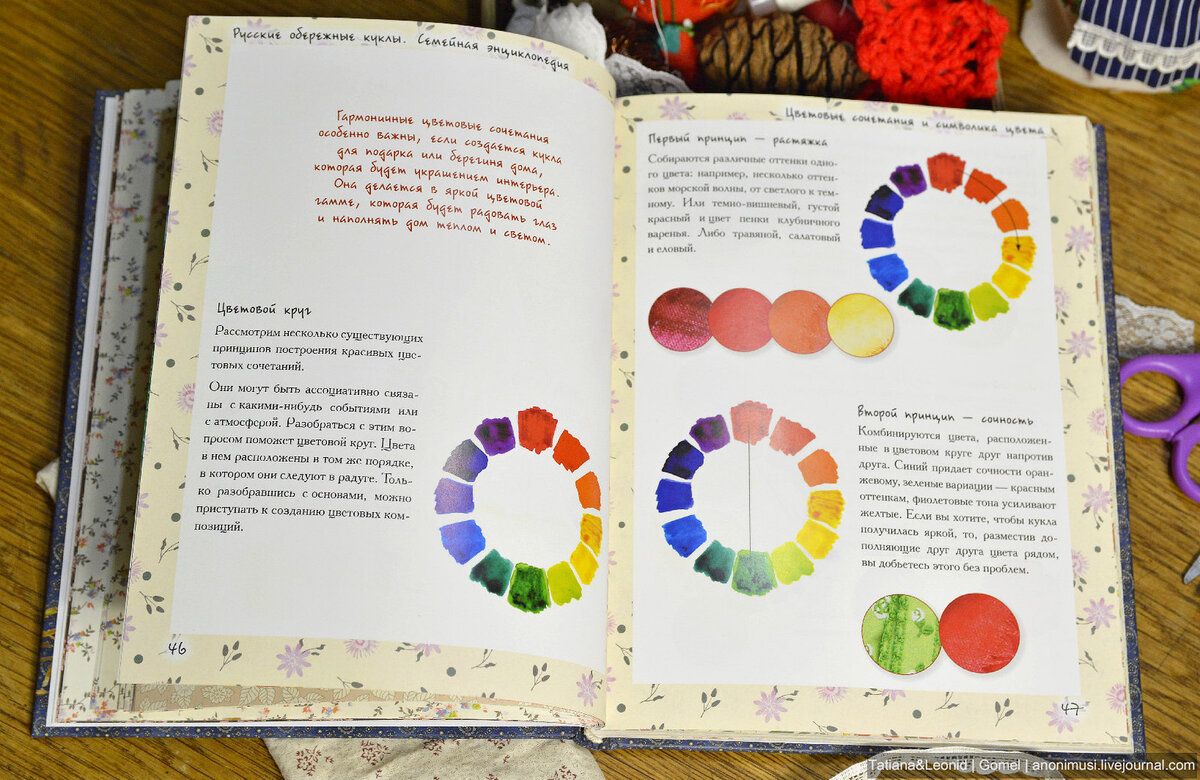 Русские обережные куклы. Семейная энциклопедия
Гармоничные цветовые сочетания
особенно важны, если создается кукла
для подарка или берегиня дома,
которая будет украшением интерьера.
Она делается в яркой цветовой
гамме, которая будет радовать глаз
и наполнять дом теплом и светом.
Цветовой круг
Рассмотрим несколько существующих
принципов построения красивых цве-
товых сочетаний.
Они могут быть ассоциативно связа-
ны с какими-нибудь событиями или
с атмосферой. Разобраться с этим во-
просом поможет цветовой круг. Цвета
в нем расположены в том же порядке,
в котором они следуют в радуге. Толь-
ко разобравшись с основами, можно
приступать к созданию цветовых ком-
позиций.
46
Цветовые сочетания и символика цвета
Первый принцип — растяжка
Собираются различные оттенки одно-
го цвета: например, несколько оттен-
ков морской волны, от светлого к тем-
ному. Или темно-вишневый, густой
красный и цвет пенки клубничного
варенья. Либо травяной, салатовый
и еловый.
Второй принцип — сочность
Комбинируются цвета, расположен-
ные в цветовом круге друг напротив
друга. Синий придает сочности оран-
жевому, зеленые вариации — красным
оттенкам, фиолетовые тона усиливают
желтые. Если вы хотите, чтобы кукла
получилась яркой, то, разместив до-
полняющие друг друга цвета рядом,
вы добьетесь этого без проблем.
47
Tatiana&Leonid | Gomel | anonimusi.livejournal.com